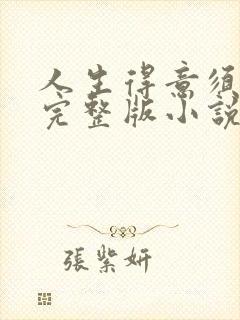 人生得意須
完整版小說
張紫妍